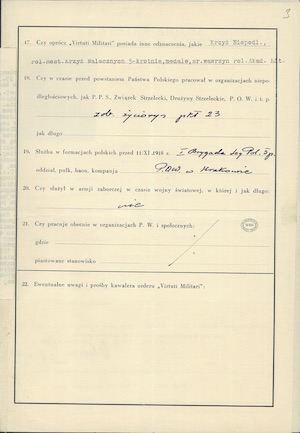 3
17. Czy oprócz „Virtuti Militari” posiada inne odznaczenia, jakie Krzyż Niepodl.,
rol.nest. krzyż Walecznych 3-krotnie, medale, sr. wawrzyn rol. Akad. Lit.
18. Czy w czasie przed powstaniem Państwa Polskiego pracował w organizacjach niepo-
dległościowych, jak P. P. S., Związek Strzelecki, Drużyny Strzeleckie, P. O. W. i t. p.
zob. życiorys pkt 23
jak długo
19. Służba w formacjach polskich przed 11/XI.1918 r. I Brygada Leg. Pol. 5 p.
oddział, pułk, baon, kompanja P.O.W. w Krakowie
20. Czy służył w armji zaborczej w czasie wojny światowej, w której i jak długo:
nie
21. Czy pracuje obecnie w organizacjach P. W. i społecznych:
gdzie
piastowane stanowisko
22. Ewentualne uwagi i prośby kawalera orderu „Virtuti Militari”: